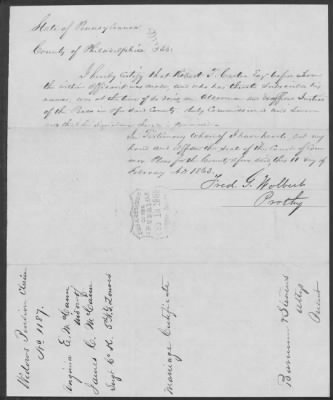 State of Pennsylvania
County of Philadelphia } ss.
I hereby certify that Robert T. Carter Esq before whom
the within affidavit was made, and who has thereto subscribed his
name, was at the time of so doing an Alderman and ex officio Justice
of the Peace in for said County duly Commissioned and sworn
and that his signature thereto is
In Testimony whereof I have hereto set my
hand and affixed the seal of the Court of Com-
mon Pleas for the County aforesaid, this 10 day of
February A.D. 1863.
Fred G. Wolbert
Prothy
Widows Pension Claim
No 1187.
Virginia E. McCann
widow of
James C. McCann
Sergt Co. K.
Marriage Certificate
& Stevens
Attys